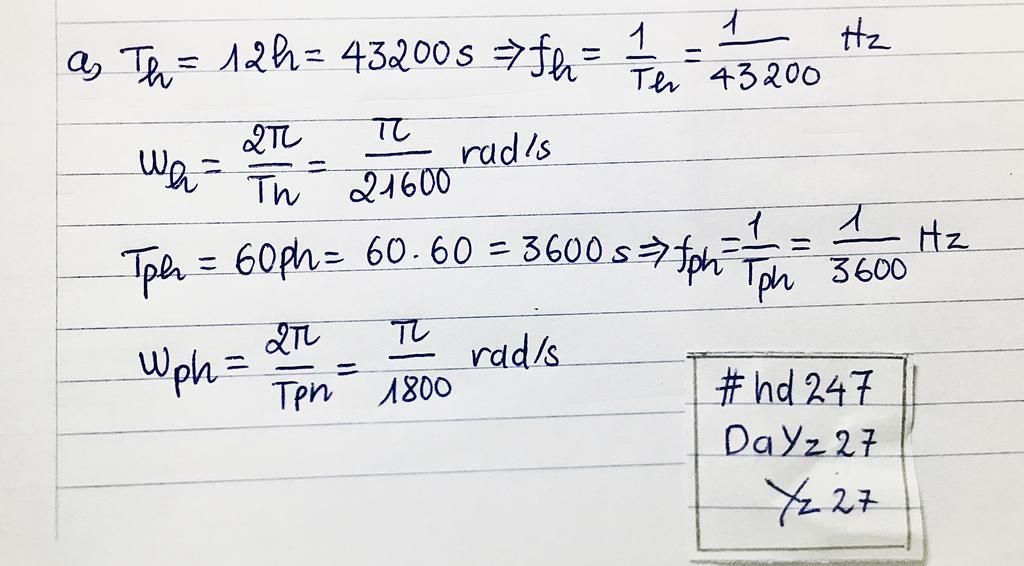 a, Th = 12h = 43200 s ⇒ fh = 1/Th = 1/43200 Hz
wh = 2π/Th = π/21600 rad/s
Tph = 60ph = 60.60 = 3600 s ⇒ fph = 1/Tph = 1/3600 Hz
wph = 2π/Tph = π/1800 rad/s
#hd247
DaYz27
Yz27